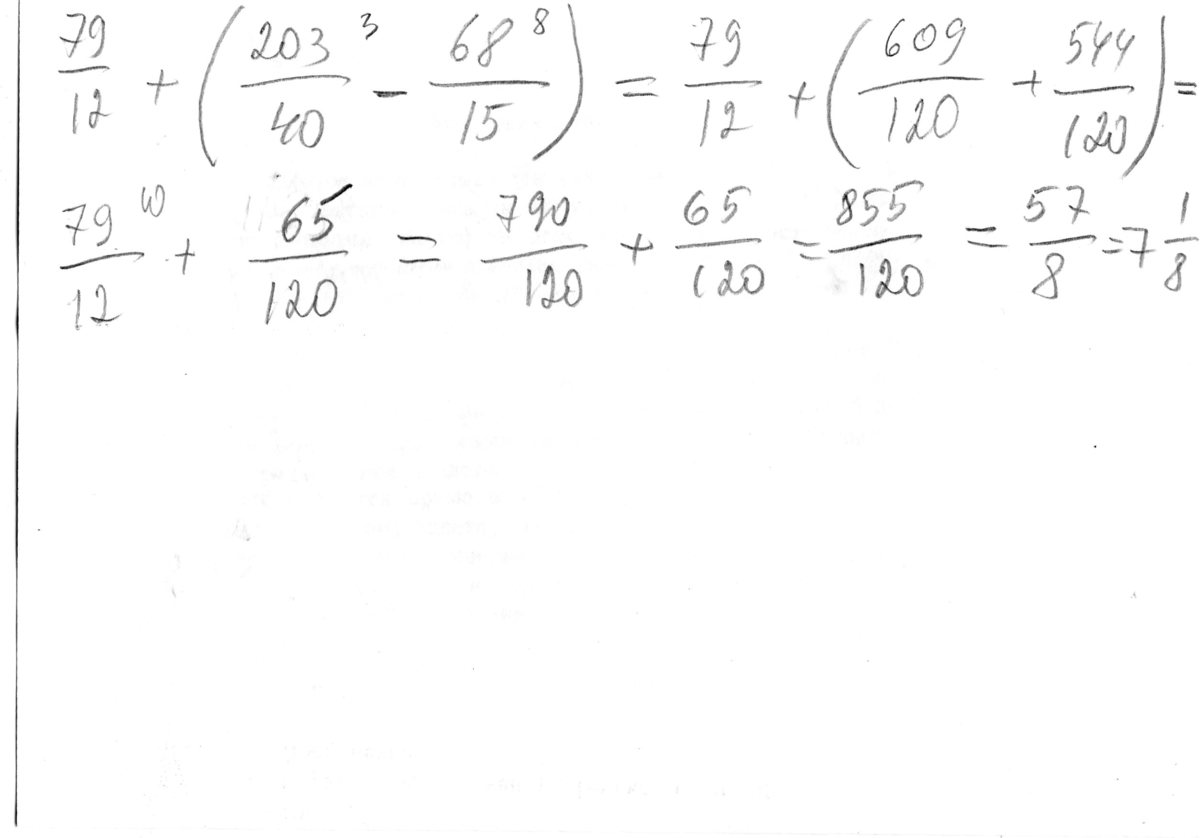 79/12 + (203³/40 - 68⁸/15) = 79/12 + (609/120 + 544/120) =
79¹⁰/12 + 65/120 = 790/120 + 65/120 = 855/120 = 57/8 = 7 1/8